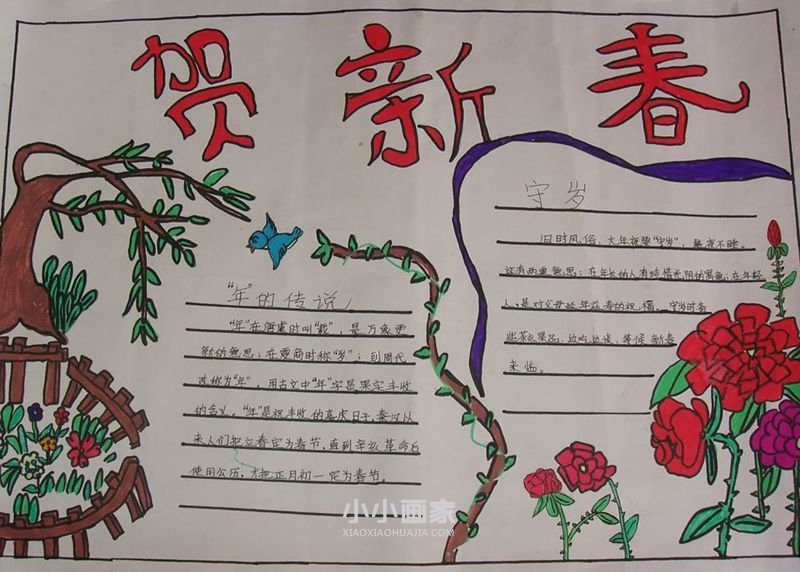 贺新春
"年"的传说
"年"在唐虞时叫"载",是万象更
新的意思;在夏商时称"岁";到周代
改称为"年"。用古文中"年"字是果定丰收
的含义。"年"是祝丰收的喜庆日子,秦汉以
来人们把立春定为春节,直到辛亥革命后
使用公历,才把正月初一定为春节。
守岁
旧时风俗,大年夜要"守岁",整夜不睡。
这有两重意思:在年长的人有珍惜光阴的意思;在年轻
人,是对父母延年益寿的祝福。守岁时备
些茶点果品,边吃边谈,等候新春
来临。
小小画家
XIAOXIAOHUAJIA.COM